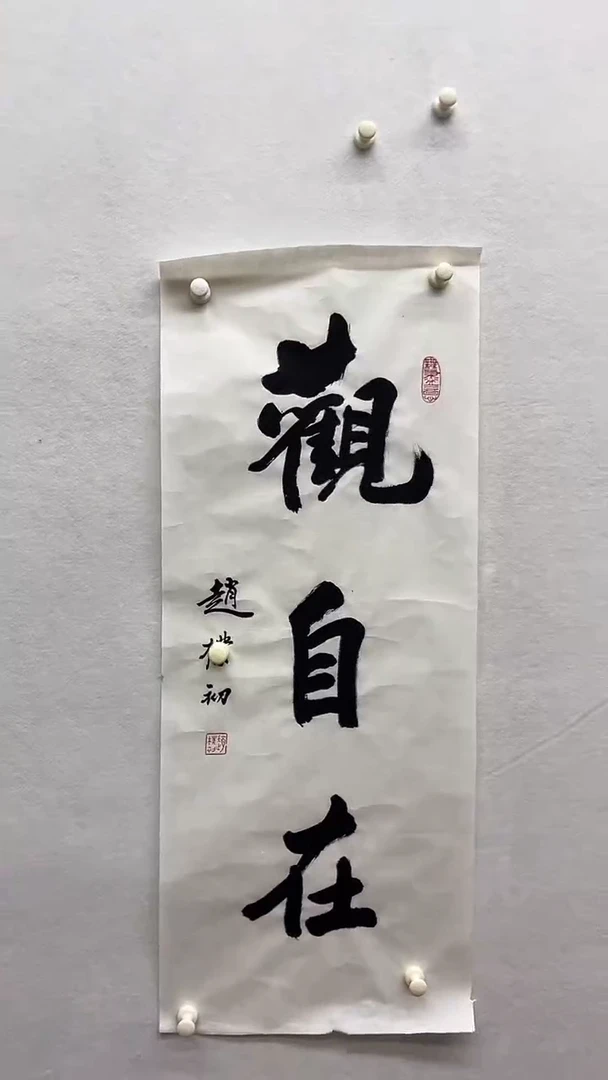 觀自在
趙樸初